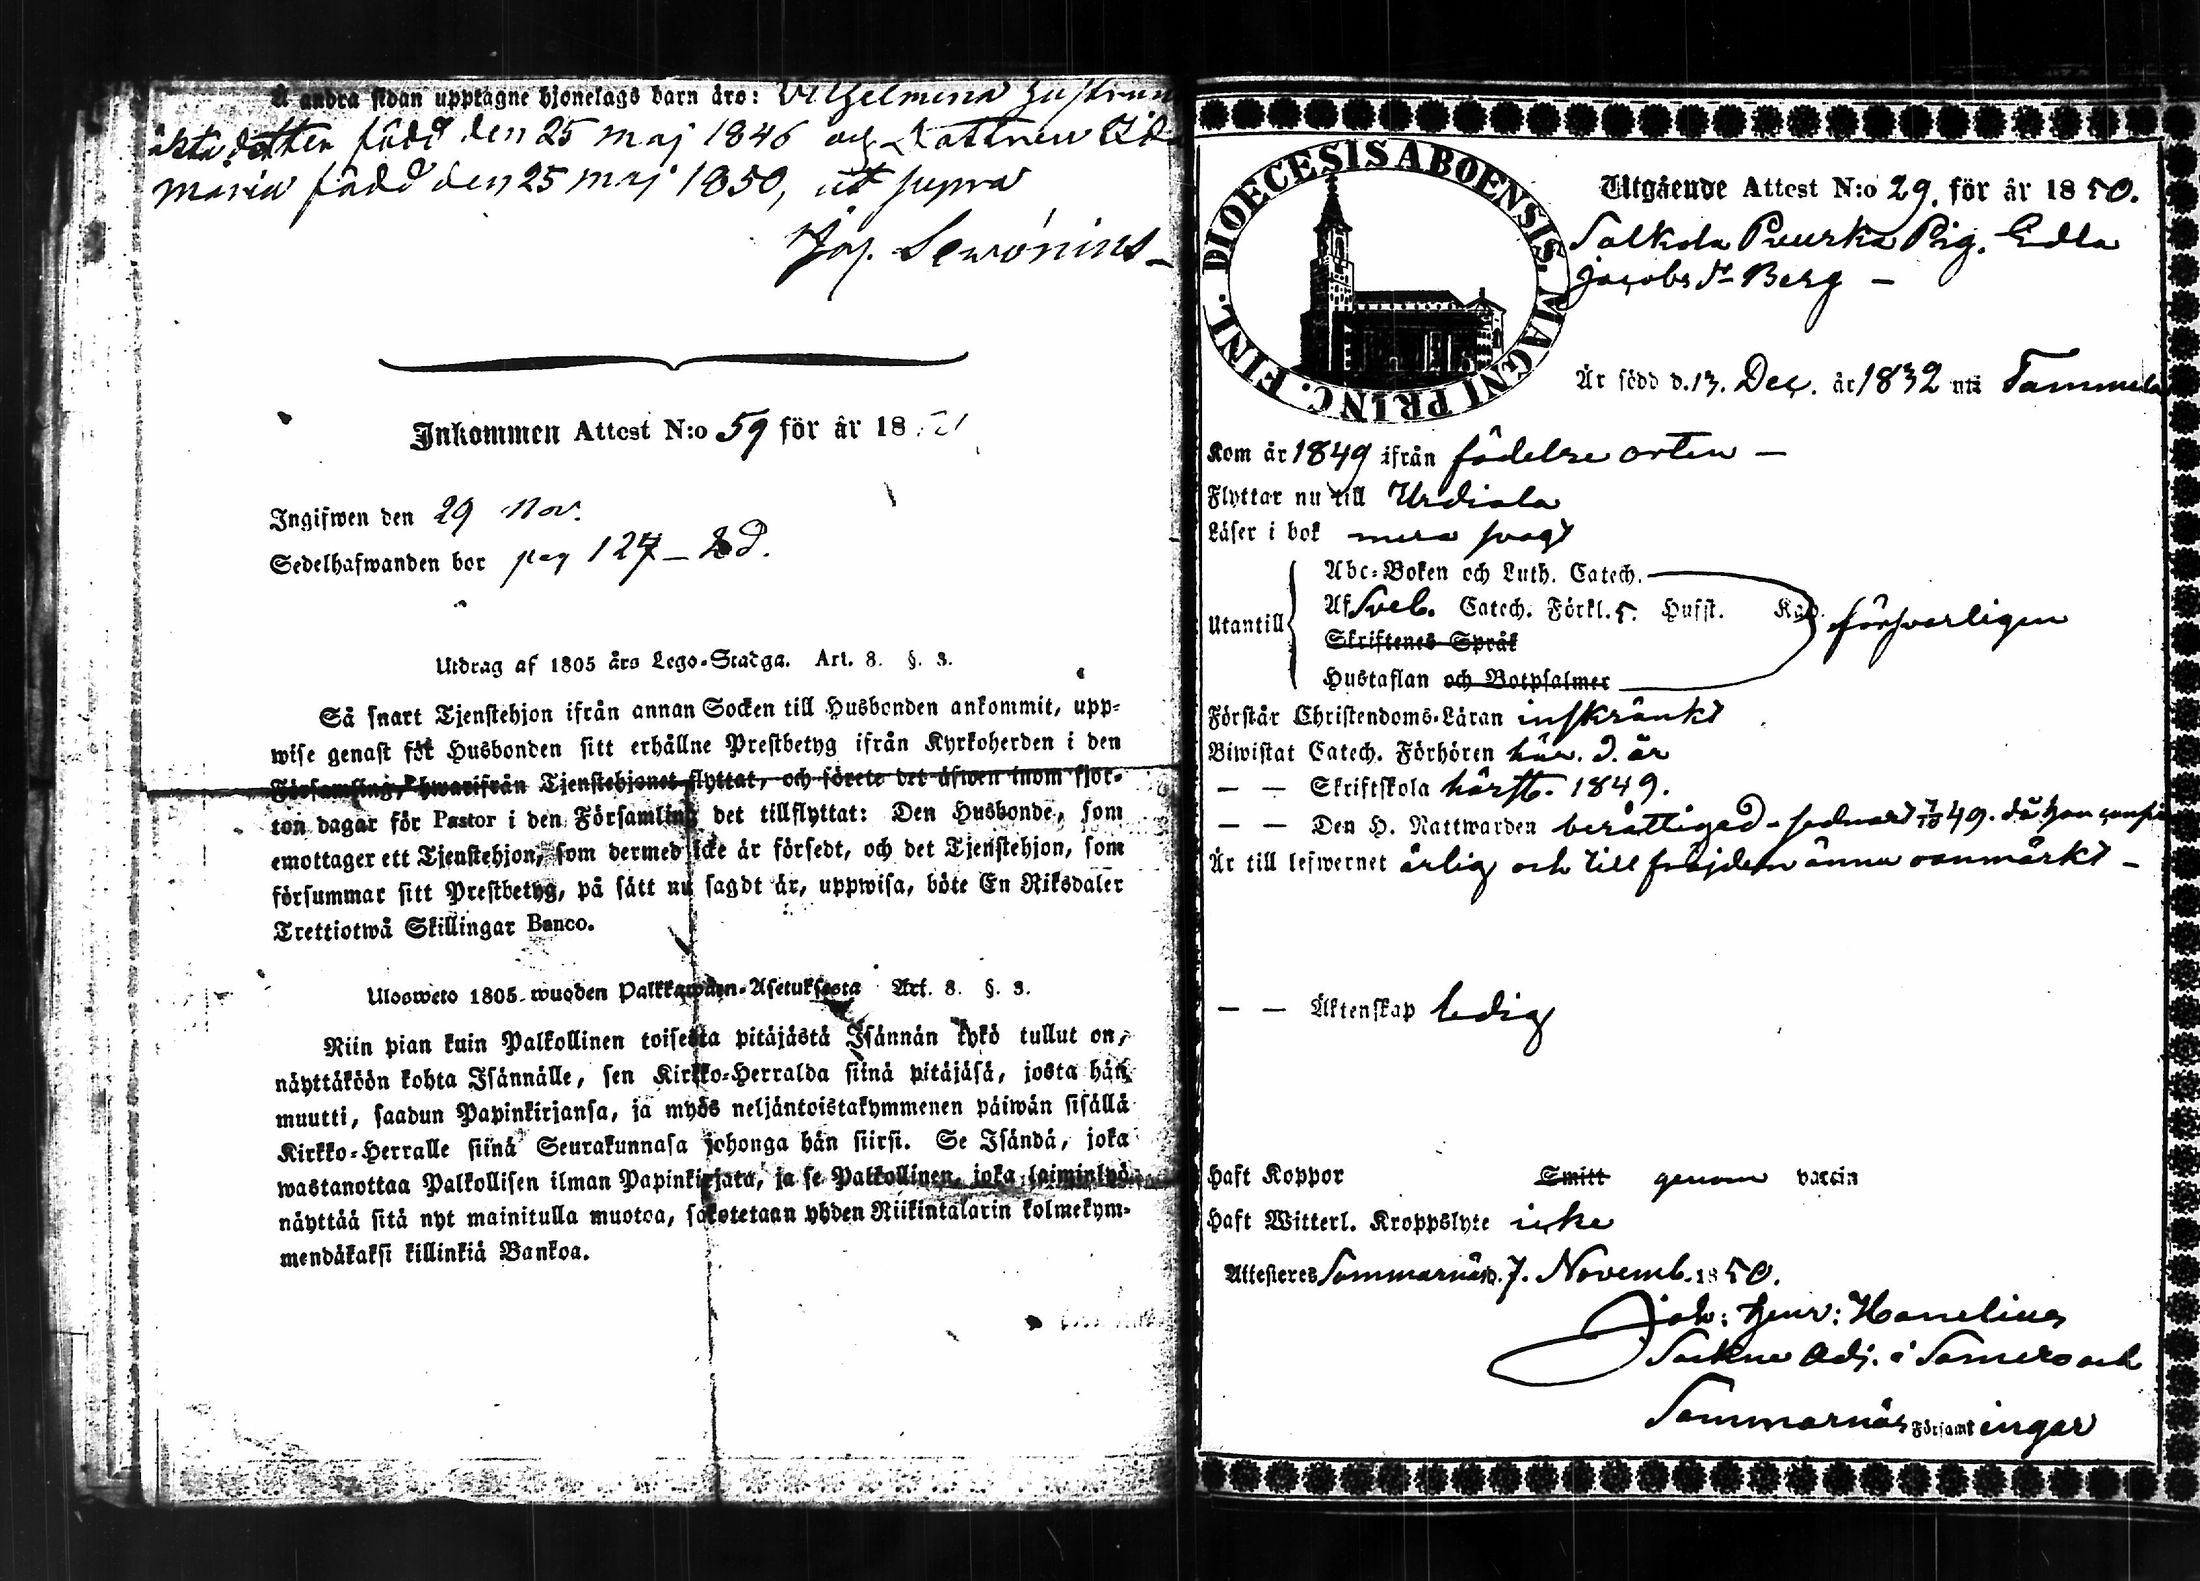 å andra sidan upptagne hjonelags barn äro: Vilhelmina hustruns
äkta dotter född den 25 maj 1846 och dottren Ida
Maria född den 25 maj 1850, ut supra
Jos. Sewónius
Inkommen Attest N:o 59 för år 18
Ingifwen den 29 Nov.
Sedelhafwanden bor pag 127
Utdrag af 1805 års Lego-Stadga. Art. 8. §. 3.
Så snart Tjenstehjon ifrån annan Socken till Husbonden ankommit, upp-
wise genast för Husbonden sitt erhållne Prestbetyg ifrån Kyrkoherden i den
Församling, hwarifrån Tjenstehjonet flyttat, och förete det äfwen inom fjor-
ton dagar för Pastor i den Församling det tillflyttat: Den Husbonde, som
emottager ett Tjenstehjon, som dermed icke är försedt, och det Tjenstehjon, som
försummar sitt Prestbetyg, på sätt nu sagdt är, uppwisa, böte En Riksdaler
Trettiotwå Skillingar Banco.
Ulosweto 1805 wuoden Palkkawäen-Asetuksesta Art. 8. §. 3.
Niin pian kuin Palkollinen toisesta pitäjästä Isännän tykö tullut on,
näyttäköön kohta Isännälle, sen Kirkko-Herralda siinä pitäjäsä, josta hän
muutti, saadun Papinkirjansa, ja myös neljäntoistakymmenen päiwän sisällä
Kirkko-Herralle siinä Seurakunnasa johonga hän siirsi. Se Isändä, joka
wastanottaa Palkollisen ilman Papinkirjata, ja se Palkollinen, joka laiminlyö
näyttää sitä nyt mainitulla muotoa, sakotetaan yhden Riikintalarin kolmekym-
mendäkaksi killinkiä Bankoa.
DIOECESIS ABOENSIS. MAGNI PRINC. FINL.
Utgående Attest N:o 29. för år 1850.
Salkola Puurka Pig. Edla
Jacobs dr Berg –
Är född d. 13. Dec. år 1832 uti Tammela
Kom år 1849 ifrån födelse orten –
Flyttar nu till Urdiala
Läser i bok mera svagt
Utantill
Abc-Boken och Luth. Catech.
Af Sveb. Catech. Förkl. 5. Hufst. Kap.
försvarligen
Skriftenes Språk
Hustaflan och Botpsalmer
Förstår Christendoms-Läran inskränkt
Biwistat Catech. Förhören här. d. år
— — Skriftskola härst. 1849.
— — Den H. Nattwarden berättigad – sednast 7/10 49. då hon
Är till lefwernet ärlig och till fräjden ännu oanmärkt –
— — Äktenskap ledig
Haft Koppor Smitt genom vaccin
Haft Witterl. Kroppslyte icke
Attesteres Sommarnäs d. 7. Novemb. 1850.
Joh: Henr: Honelius
Sockne Adj. i Somero och
Sommarnäs Församlingar